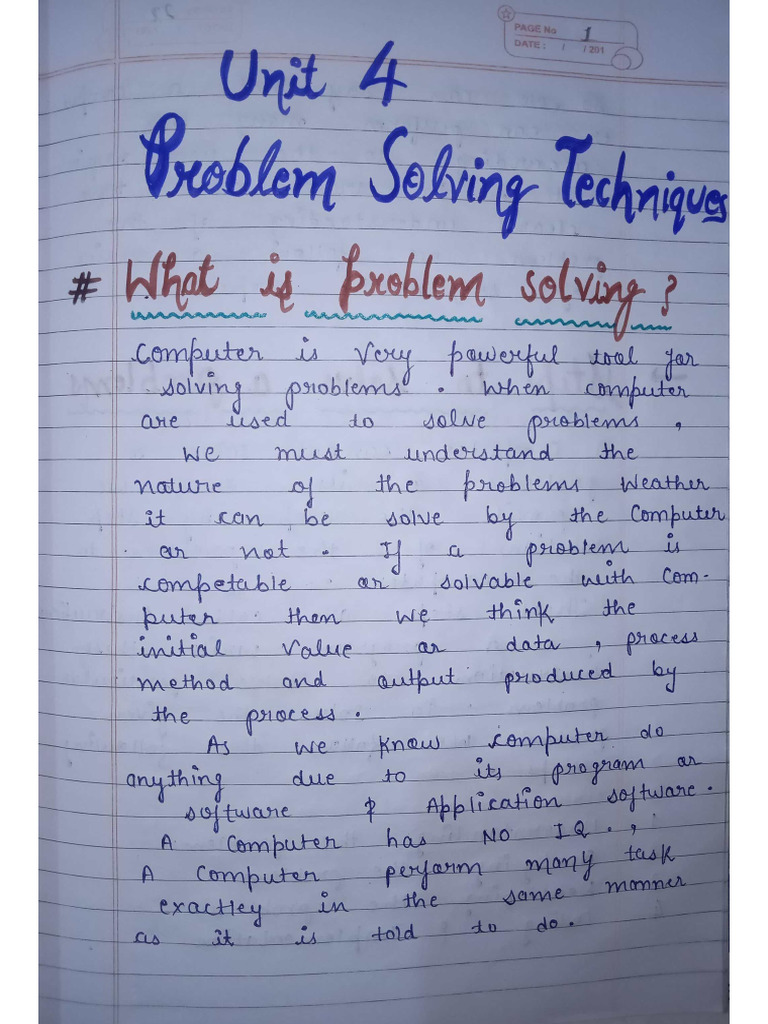 PAGE No 1
DATE: / /201
Unit 4
Problem Solving Techniques
# What is problem solving?
computer is very powerful tool for
solving problems. When computer
are used to solve problems,
we must understand the
nature of the problems weather
it can be solve by the computer
or not. If a problem is
competable or solvable with com-
puter then we think the
initial value or data, process
method and output produced by
the process.
As we know computer do
anything due to its program or
software & Application software.
A computer has NO IQ.,
A computer perform many task
exactley in the same manner
as it is told to do.